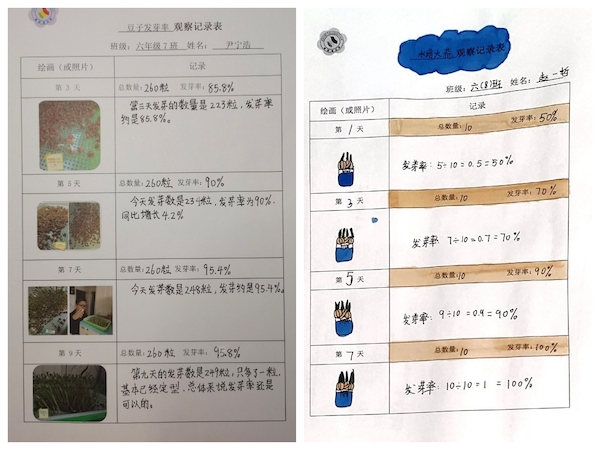 豆子发芽率 观察记录表
班级：六年级7班 姓名： 尹宁浩
绘画（或照片） 记录
第 3 天 总数量：260粒 发芽率：85.8%
第三天发芽的数量是223粒，发芽率
约是85.8%。
第 5 天 总数量：260粒 发芽率：90%
今天发芽数是234粒，发芽率为90%，
同比增长4.2%
第 7 天 总数量：260粒 发芽率：95.4%
今天发芽数是248粒，发芽约是95.4%。
第 9 天 总数量：260粒 发芽率：95.8%
第九天的发芽数是249粒，只多了一粒，
基本已经定型，总体来说发芽率还是
可以的。
观察记录表
班级：六(8)班 姓名：赵一哲
绘画（或照片） 记录
第 1 天 总数量：10 发芽率：50%
发芽率：5÷10=0.5=50%
第 3 天 总数量：10 发芽率：70%
发芽率：7÷10=0.7=70%
第 5 天 总数量：10 发芽率：90%
发芽率：9÷10=0.9=90%
第 7 天 总数量：10 发芽率：100%
发芽率：10÷10=1=100%